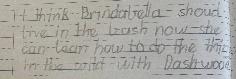 I think Brindabella shoud
live in the bush now she
can lean how to do the this
in the wild with Dashwood